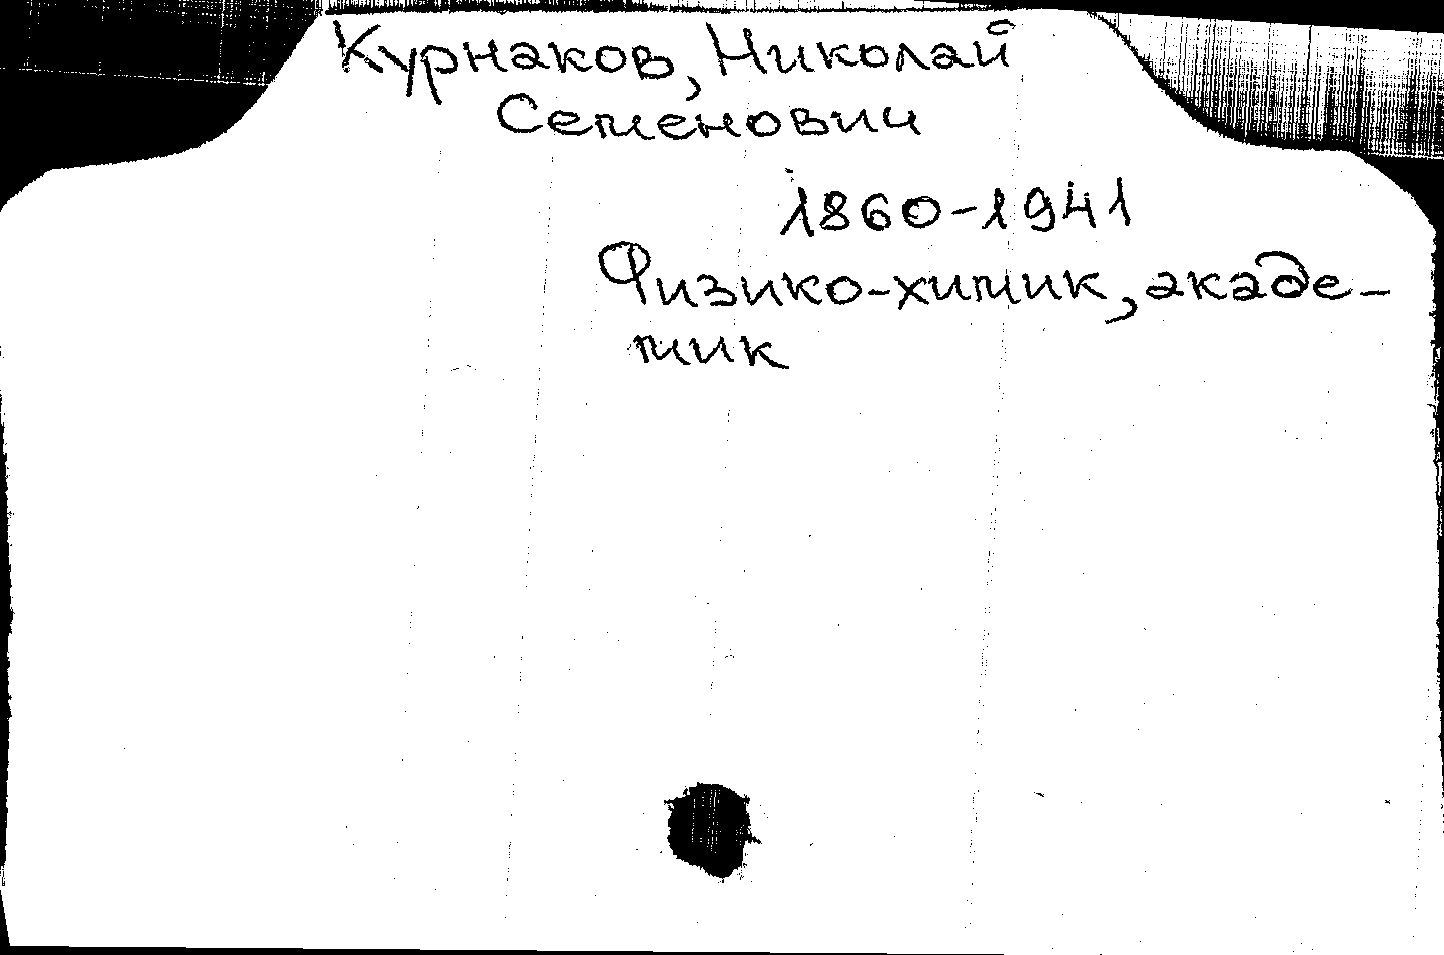 Курнаков, Николай
Семенович
1860-1941
Физико-химик, акаде-
мик